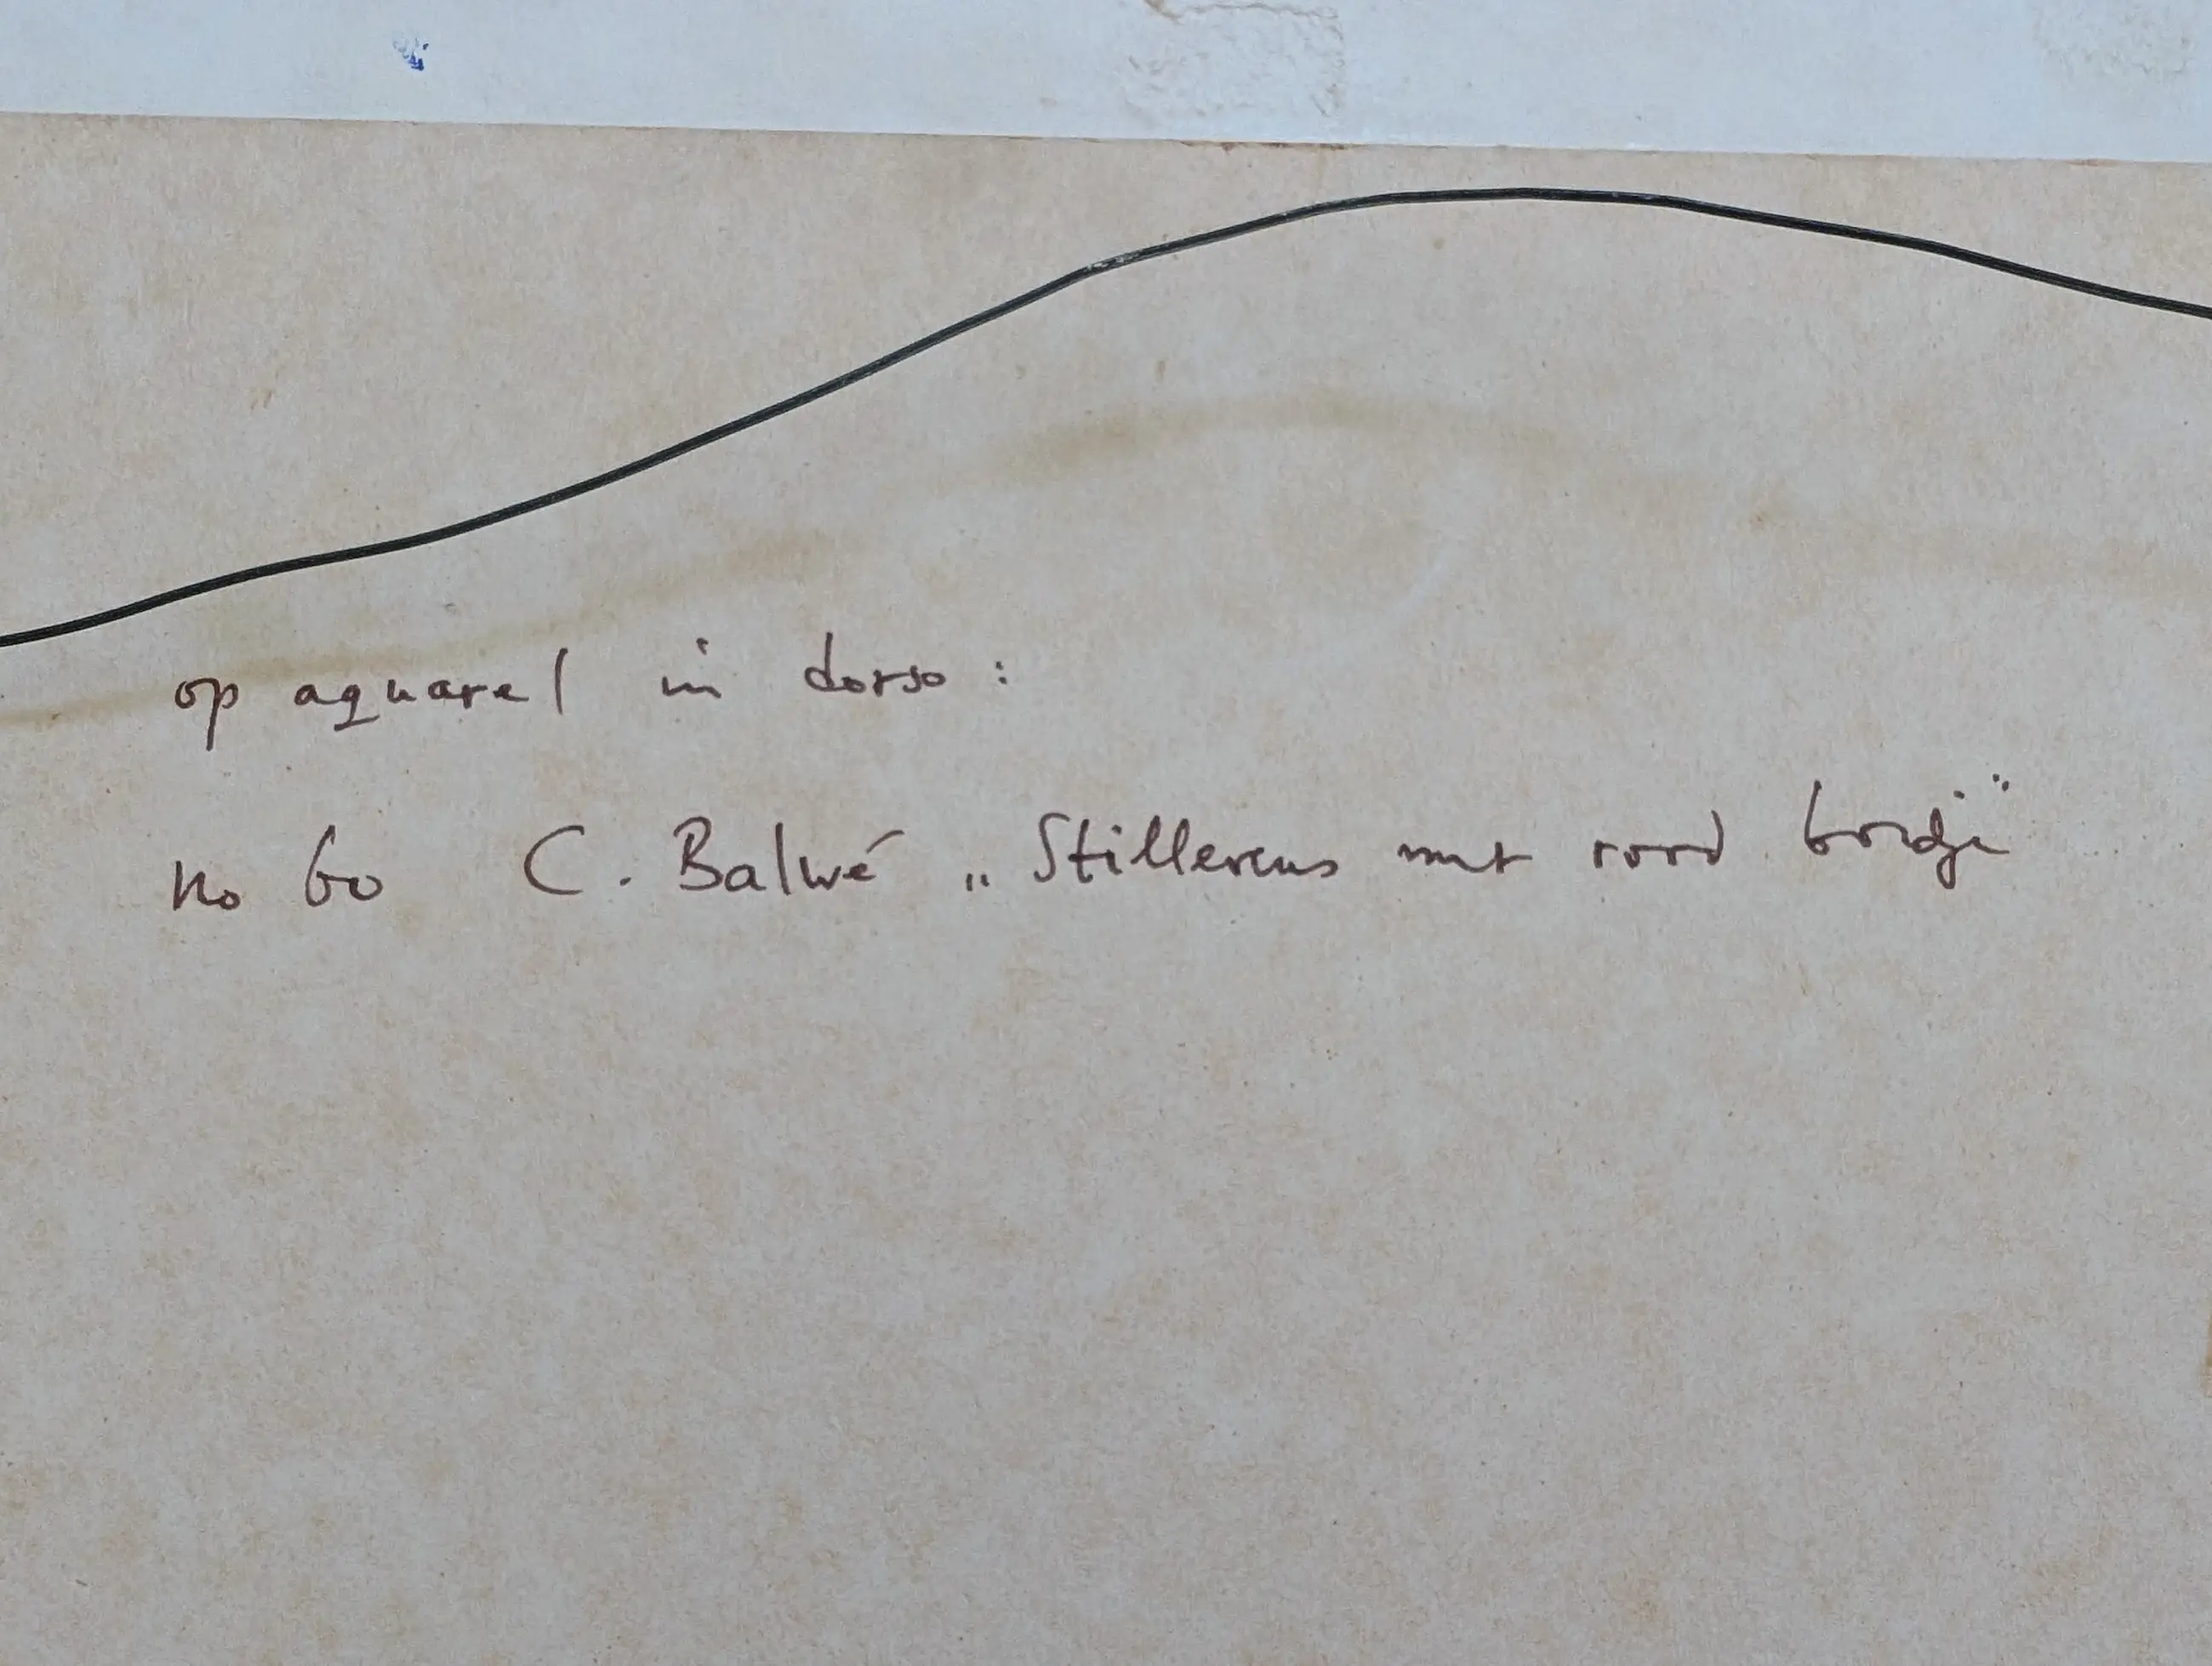 op aquarel in dorso :
no 60 C. Balwé „Stilleven met rood bordje"